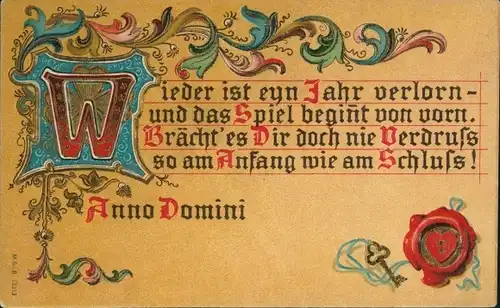 Wieder ist eyn Jahr verlorn-
und das Spiel begiñt von vorn.
Brächt'es Dir doch nie Verdruss
so am Anfang wie am Schluss!
Anno Domini